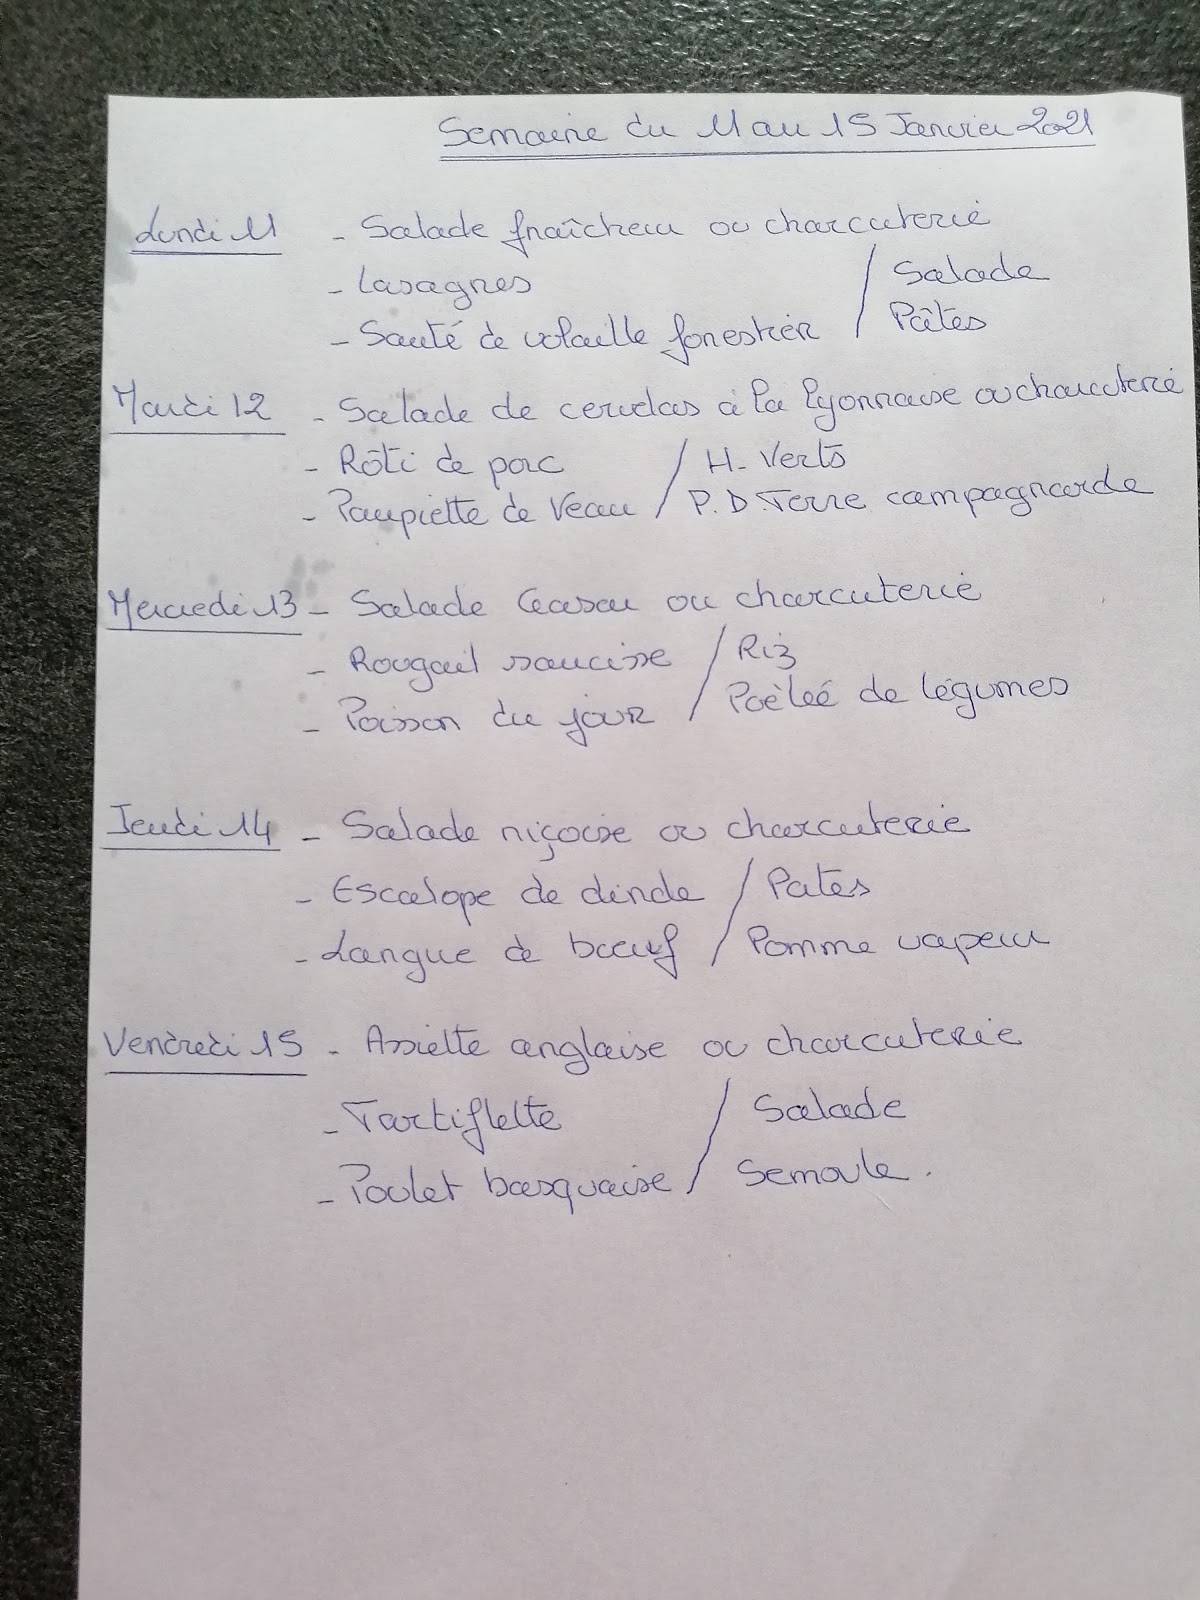 Semaine du 11 au 15 Janvier 2021
Lundi 11 - Salade fraîcheur ou charcuterie
- Lasagnes / Salade
- Sauté de volaille forestier / Pâtes
Mardi 12 - Salade de cervelas à la lyonnaise ou charcuterie
- Rôti de porc / H. Verts
- Paupiette de Veau / P.D.Terre campagnarde
Mercredi 13 - Salade Ceasar ou charcuterie
- Rougail saucisse / Riz
- Poisson du jour / Poèleé de légumes
Jeudi 14 - Salade niçoise ou charcuterie
- Escalope de dinde / Pates
- Langue de bœuf / Pomme vapeur
Vendredi 15 - Assiette anglaise ou charcuterie
- Tartiflette / Salade
- Poulet basquaise / Semoule.